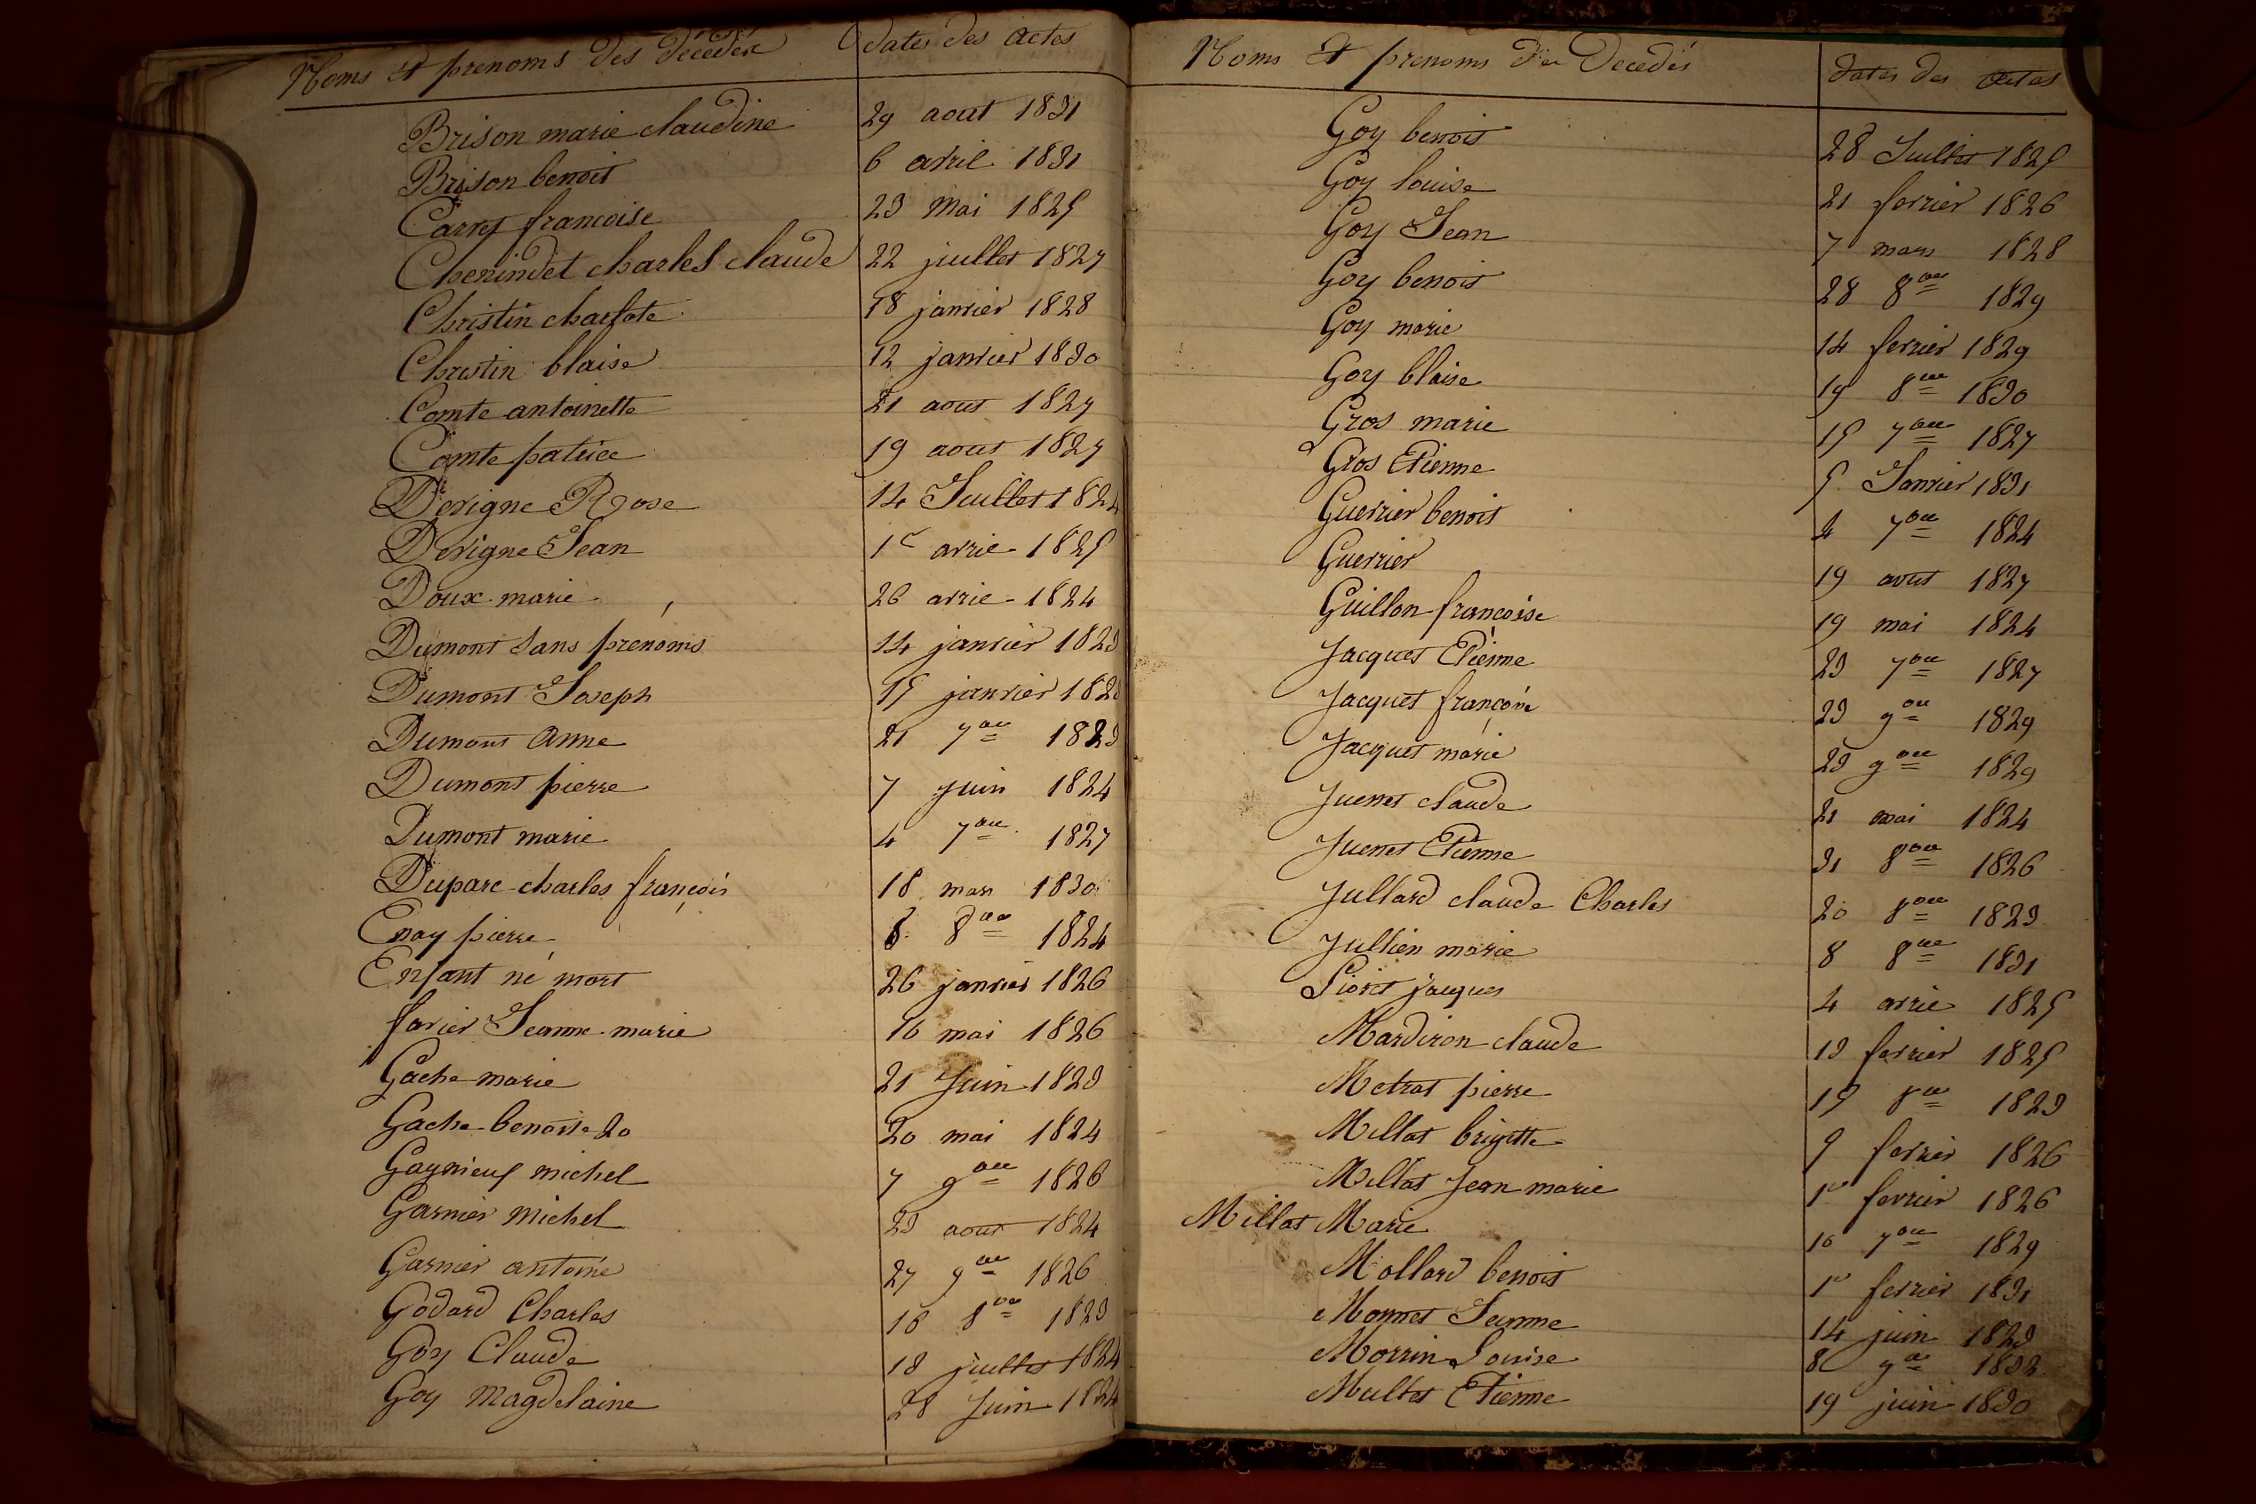 Noms et prenoms des décédés dates des actes
Brison marie claudine 29 aout 1831
Brison benoit 6 avril 1831
Carret francoise 23 mai 1825
Chenindet charles claude 22 juillet 1827
Christin charlote 18 janvier 1828
Christin blaise 12 janvier 1830
Comte antoinette 21 aout 1827
Comte patrice 19 aout 1827
Dervigne Rose 14 Juillet 1824
Dervigne Jean 1er avrie 1825
Doux marie 26 avrie 1824
Dumont sans prénoms 14 janvier 1823
Dumont Joseph 15 janvier 182
Dumont anne 21 7bre 1823
Dumont pierre 7 juin 1824
Dumont marie 4 7bre 1827
Duparc charles françois 18 mars 1830
Enay pierre 6 8bre 1824
Enfant né mort 26 janvier 1826
favier Jeanne marie 16 mai 1826
Gache marie 21 Juin 1823
Gache benoite 20 mai 1824
Gagnieux michel 7 9bre 1826
Garnier michel 23 aout 1824
Garnier antoine 27 9bre 1826
Godard Charles 16 8bre 1823
Goy Claude 18 juillet 1824
Goy Magdelaine 28 Juin 1824
Noms et prenoms des Decedés dates des actes
Goy benoit 28 Juillet 1825
Goy louise 21 fevrier 1826
Goy Jean 7 mars 1828
Goy benoit 28 8bre 1829
Goy marie 14 fevrier 1829
Goy blaise 19 8bre 1830
Gros marie 15 7bre 1827
Gros Etienne 5 Janvier 1831
Guerrier benoit 4 7bre 1824
Guerrier 19 aout 1827
Guillon françoise 19 mai 1824
Jacquet Etienne 23 7bre 1827
Jacquet françoise 23 9bre 1829
Jacquet marie 23 9bre 1829
Juenet claude 21 mai 1824
Juenet Etienne 31 8bre 1826
Jullard claude Charles 20 8bre 1823
Jullien marie 8 8bre 1831
Lioret jacques 4 avrie 1825
Mardiron claude 13 fevrier 1825
Metrat pierre 15 8bre 1823
Millat brigitte 9 fevrier 1826
Millat Jean marie 1er fevrier 1826
Millat Marie 16 7bre 1829
Mollard benoit 1er fevrier 1831
Monnet Jeanne 14 juin 1823
Morrin Louise 8 9bre 1832
Multet Etienne 19 juin 1830